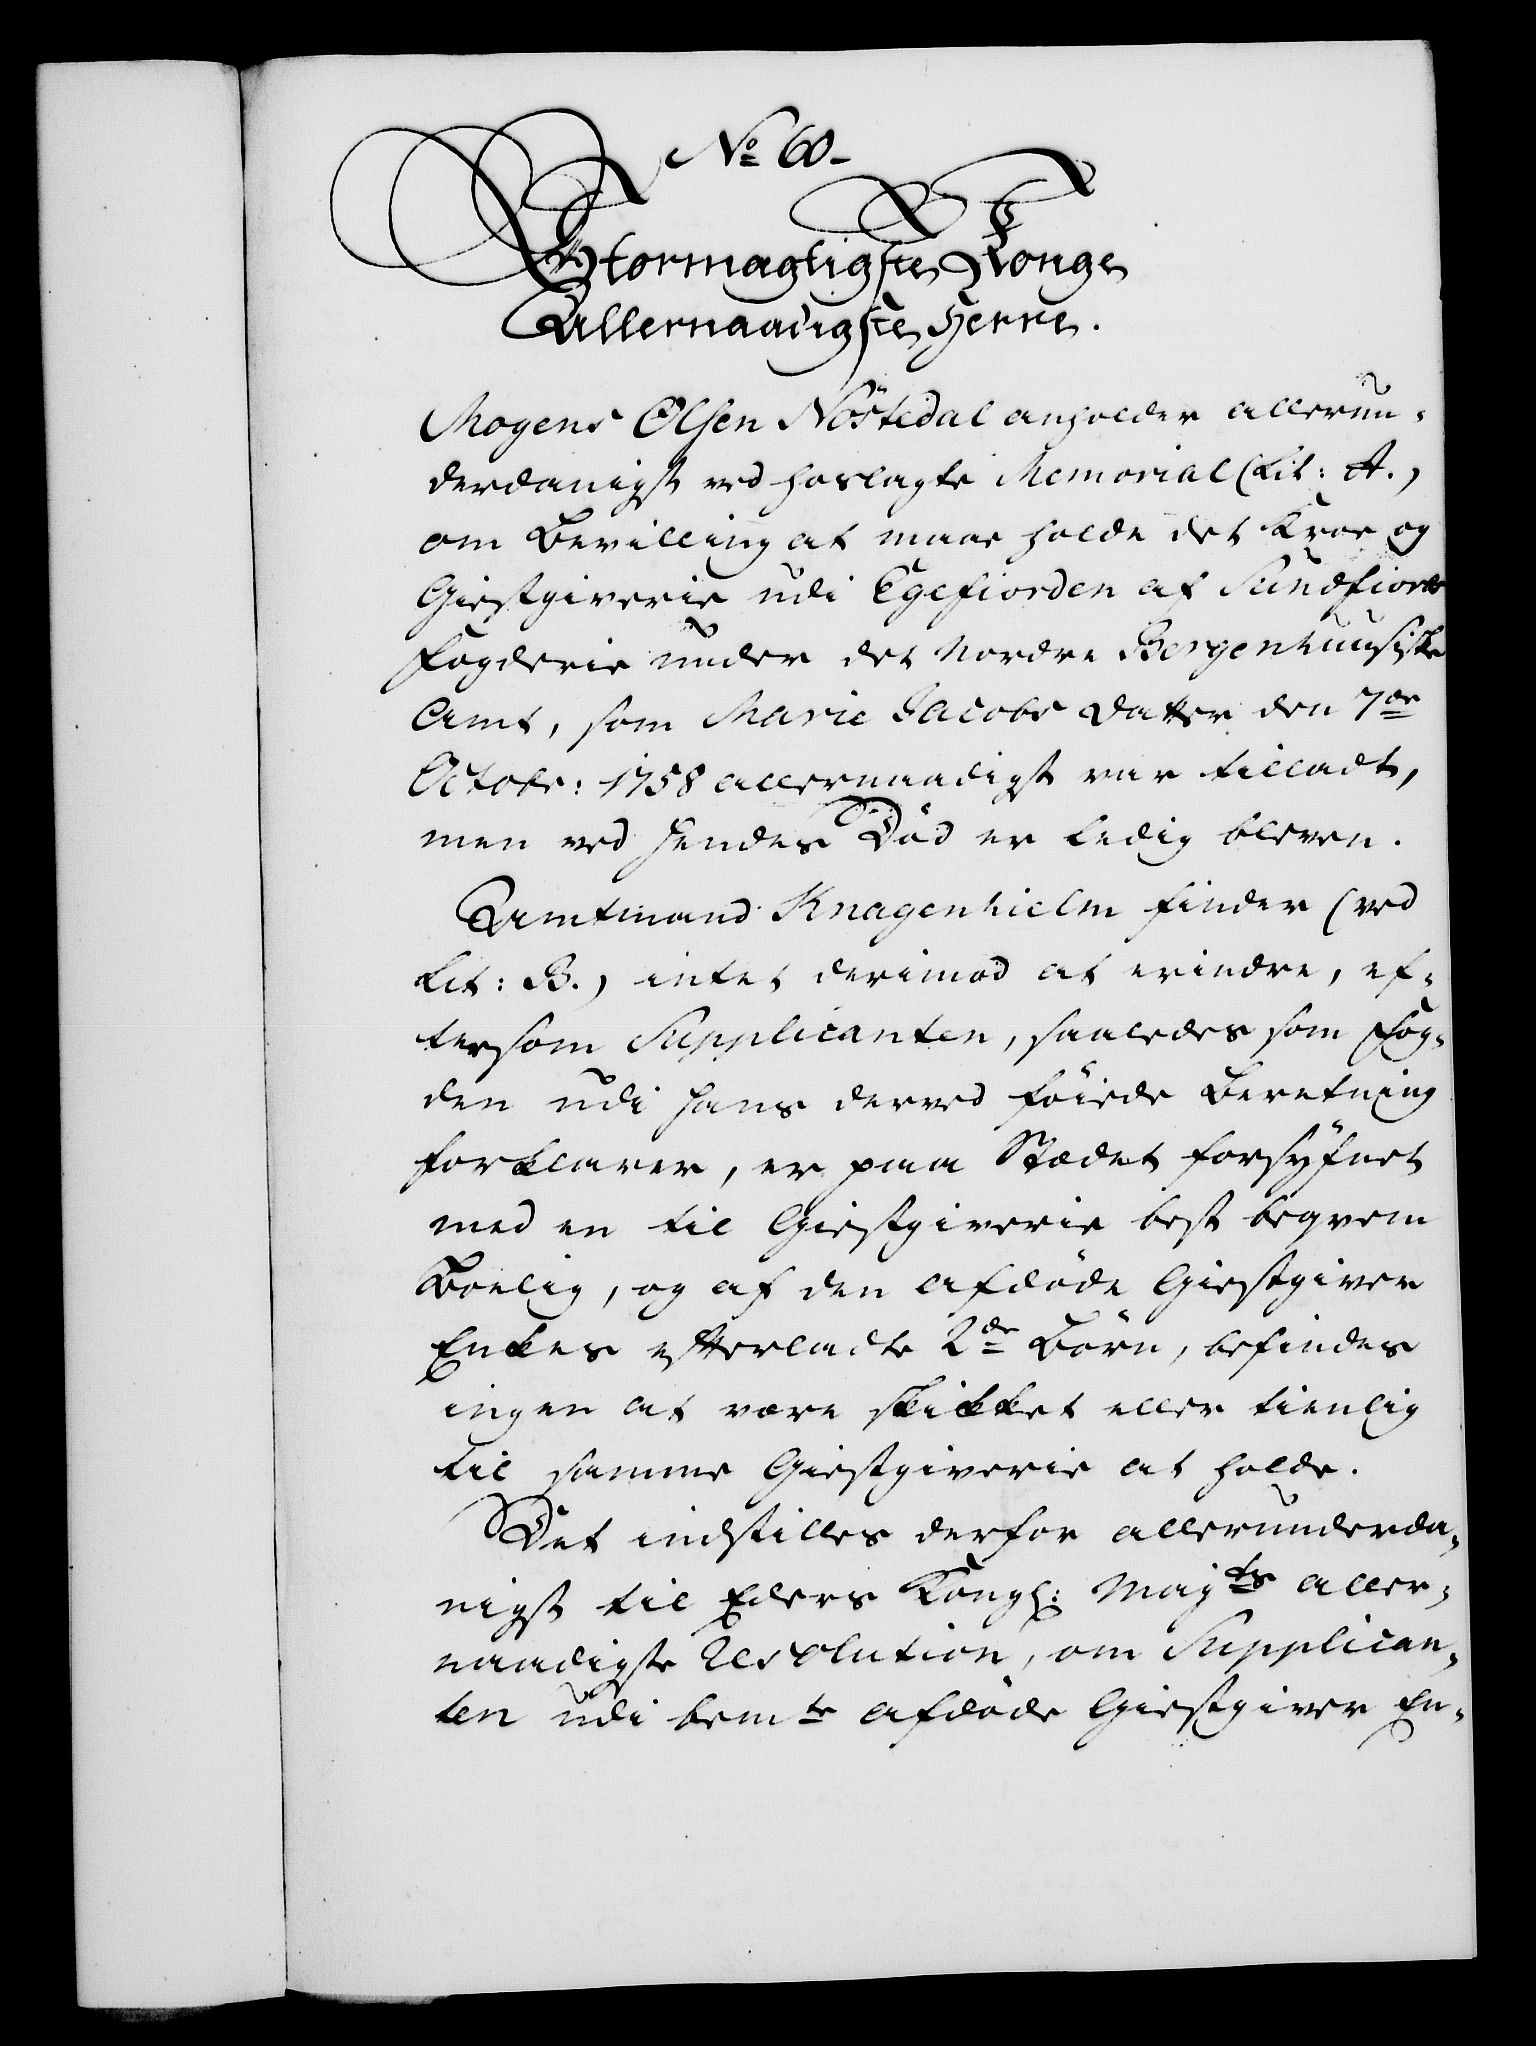 No 60-
Stormægtigste Konge
Allernaadigste Herre.
Mogens Olsen Nöstedal anholder allerun-
derdanigst ved hoslagte Memorial (Lit: A.)
om Bevilling at maae holde det Kroe og
Giestgiverie udi Egefiorden af Sundfiords
Fogderie under det Nordre Bergenhuusiske
Amt, som Marie Jacobs Datter den 7de
Octobr: 1758 allernaadigst var tilladt,
men ved hendes Död er ledig bleven.
Amtmand Knagenhielm finder (ved
Lit: B.) intet derimod at erindre, ef-
tersom Supplicanten, saaledes som Fog-
den udi hans derved föiede Beretning
forklarer, er paa Stædet forsÿfnet
med en til Giestgiverie best beqvem
Boelig, og af den afdöde Giestgiver
Enkes efterladte 2de Börn, befindes
ingen at være skikket eller tienlig
til samme Giestgiverie at holde.
Det indstilles derfor allerunderda-
nigst til Eders Kongl: Majts aller-
naadigste Resolution, om Supplican-
ten udi bemte afdöde Giestgiver En-